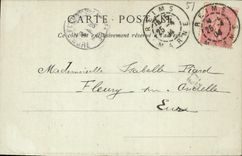 51
CARTE POSTALE
Ce côté est exclusivement réservé à l'adresse
REIMS
MARNE
REIMS
25
MARNE
EURE
Mademoiselle Isabelle Picard
Fleury sur Andelle
Eure